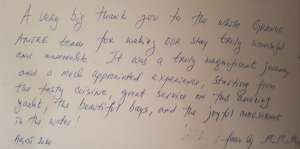 A very big thank you to the whole
team for making our stay truly wonderful
and memorable. It was a truly magnificent journey
and a much appreciated experience, starting from
the tasty cuisine, great service on this amazing
yacht, the beautiful bays, and the joyful amusement
in the water!
from